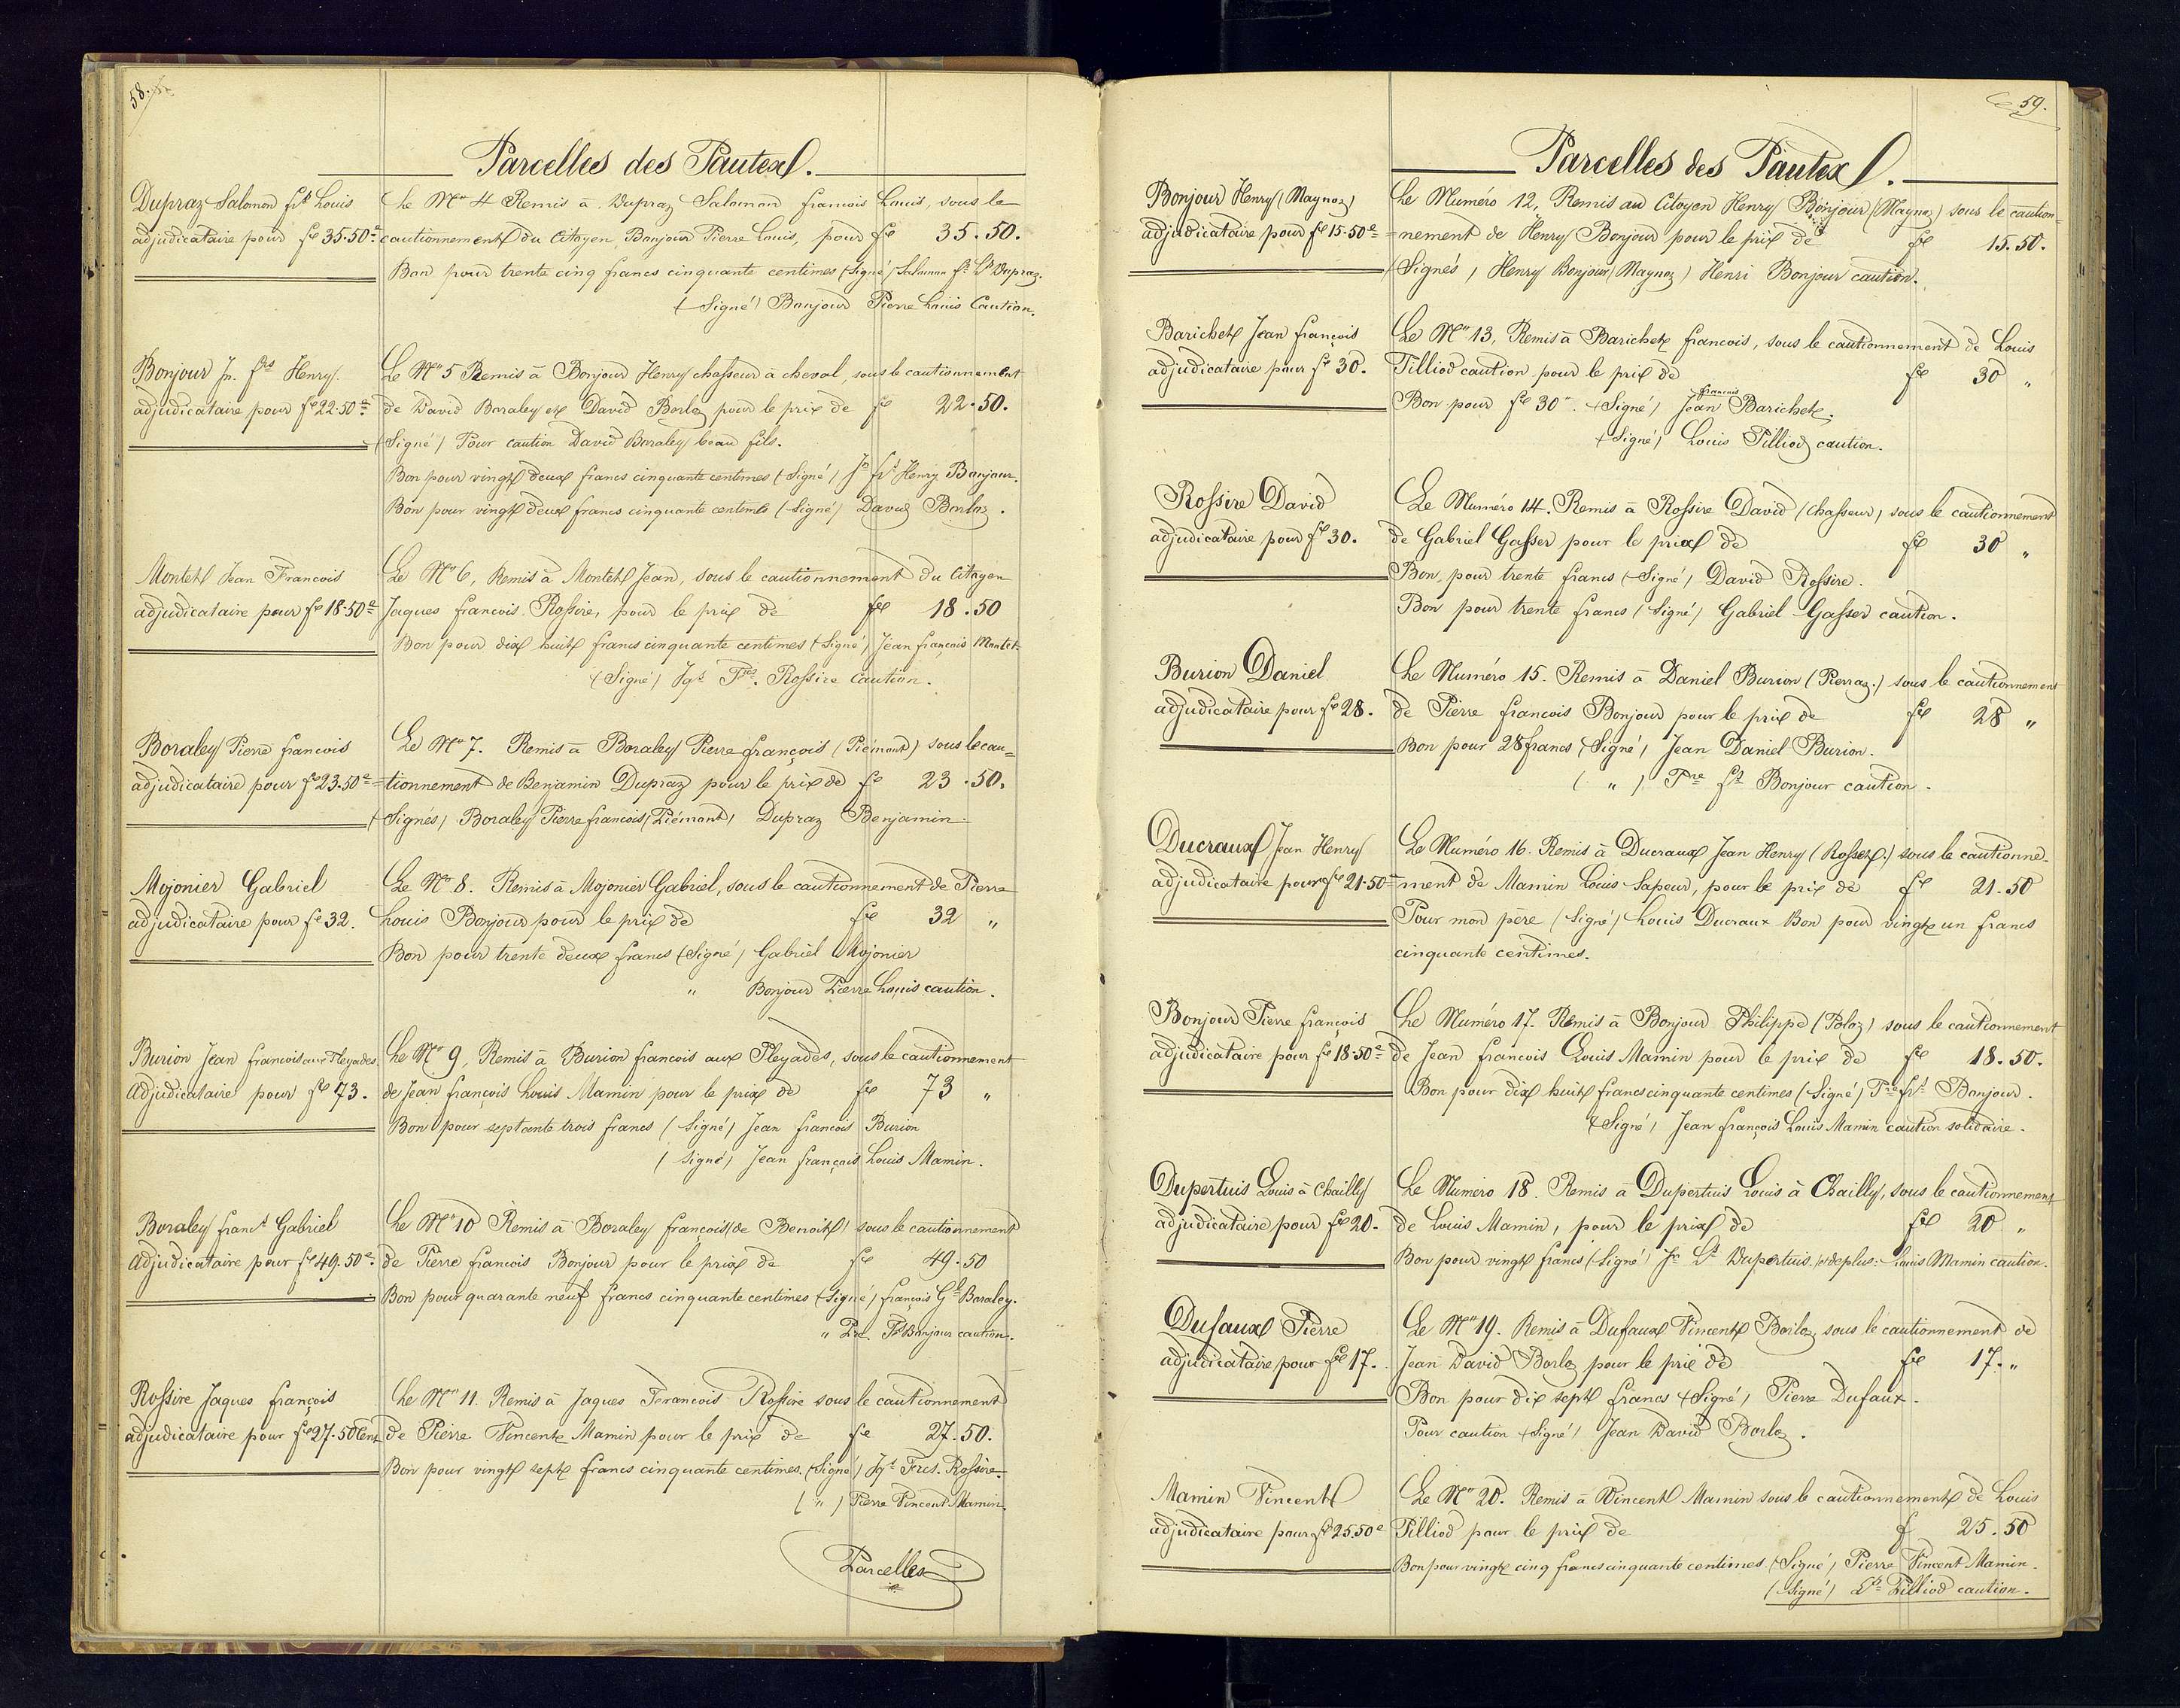 58.
Parcelles des Pautex.
Dupraz Salomon fs Louis
adjudicataire pour fc 35.50c
Le No 4 Remis à Dupraz Salomon francois Louis, sous le
cautionnement du Citoyen Bonjour Pierre Louis, pour fc 35.50.
Bon pour trente cinq francs cinquante centimes (Signé) Salomon fs Ls Dupraz.
(Signé) Bonjour Pierre Louis Caution.
Bonjour Jn. frs Henry.
adjudicataire pour fc 22.50c
Le No 5 Remis à Bonjour Henry chasseur à cheval, sous le cautionnement
de David Boraley et David Borloz pour le prix de fc 22.50.
(Signé) Pour caution David Boraley beau fils.
Bon pour vingt deux francs cinquante centimes (Signé) Jn frs Henry Bonjour.
Bon pour vingt deux francs cinquante centimes (Signé) David Borloz.
Montet Jean Francois
adjudicataire pour fc 18.50c
Le No 6, Remis à Montet Jean, sous le cautionnement du Citoyen
Jaques francois Rossire, pour le prix de fc 18.50
Bon pour dix huit francs cinquante centimes (Signé) Jean françois Montet.
(Signé) Jqs Fcs. Rossire Caution.
Boraley Pierre francois
adjudicataire pour f 23.50c
Le No 7. Remis à Boraley Pierre françois (Piémont) sous le cau=
=tionnement de Benjamin Dupraz pour le prix de fc 23.50.
(Signés) Boraley Pierre francois (Piémont) Dupraz Benjamin.
Mojonier Gabriel
adjudicataire pour fc 32.
Le No 8. Remis à Mojonier Gabriel, sous le cautionnement de Pierre
Louis Bonjour pour le prix de fc 32 "
Bon pour trente deux francs (Signé) Gabriel Mojonier
" Bonjour Pierre Louis caution.
Burion Jean francois aux Pleyades.
Adjudicataire pour fc 73.
Le No 9, Remis à Burion francois aux Pleyades, sous le cautionnement
de Jean françois Louis Mamin pour le prix de fc 73 "
Bon pour septante trois francs (Signé) Jean francois Burion
(Signé) Jean françois Louis Mamin.
Boraley francs Gabriel
Adjudicataire pour fc 49.50c.
Le No 10 Remis à Boraley françois (de Benoit) sous le cautionnement
de Pierre francois Bonjour pour le prix de fc 49.50
Bon pour quarante neuf francs cinquante centimes (Signé) françois Gl Boraley.
" Pre. Fs Bonjour caution.
Rossire Jaques françois
adjudicataire pour fc 27.50 Cent
Le No 11. Remis à Jaques Francois Rossire sous le cautionnement
de Pierre Vincent Mamin pour le prix de fc 27.50.
Bon pour vingt sept francs cinquante centimes. (Signé) Jqs Frcs. Rossire.
( " ) Pierre Vincent Mamin.
Parcelles
59.
Parcelles des Pautex.
Bonjour Henry (Maynoz)
adjudicataire pour fc 15.50c
Le Numéro 12, Remis au Citoyen Henry Bonjour (Maynoz) sous le caution=
=nement de Henry Bonjour pour le prix de fc 15.50.
(Signés) Henry Bonjour (Maynoz) Henri Bonjour caution.
Barichet Jean françois
adjudicataire pour fc 30.
Le No 13, Remis à Barichet francois, sous le cautionnement de Louis
Pilliod caution pour le prix de fc 30 "
Bon pour fc 30 ". (Signé) Jean françois Barichet.
(Signé) Louis Pilliod caution.
Rossire David
adjudicataire pour fc 30.
Le Numéro 14. Remis à Rossire David (Chasseur) sous le cautionnement
de Gabriel Gasser pour le prix de fc 30 "
Bon, pour trente francs (Signé) David Rossire.
Bon pour trente francs (Signé) Gabriel Gasser caution.
Burion Daniel
adjudicataire pour fc 28.
Le Numéro 15. Remis à Daniel Burion (Pierraz.) sous le cautionnement
de Pierre francois Bonjour pour le prix de fc 28 "
Bon pour 28 francs (Signé) Jean Daniel Burion.
( " ) Pre fs Bonjour caution.
Ducraux Jean Henry
adjudicataire pour fc 21.50c
Le Numéro 16. Remis à Ducraux Jean Henry (Rosset.) sous le cautionne-
=ment de Mamin Louis Sapeur, pour le prix de fc 21.50
Pour mon père (Signé) Louis Ducraux Bon pour vingt un francs
cinquante centimes.
Bonjour Pierre françois
adjudicataire pour fc 18.50c
Le Numéro 17. Remis à Bonjour Philippe (Poloz) sous le cautionnement
de Jean francois Louis Mamin pour le prix de fc 18.50.
Bon pour dix huit francs cinquante centimes (Signé) Pre frs Bonjour.
(Signé) Jean françois Louis Mamin caution solidaire.
Dupertuis Louis à Chailly
adjudicataire pour fc 20.
Le Numéro 18. Remis à Dupertuis Louis à Chailly, sous le cautionnement
de Louis Mamin, pour le prix de fc 20 "
Bon pour vingt francs (Signé) Jn Ls Dupertuis. de plus: Louis Mamin caution.
Dufaux Pierre
adjudicataire pour fc 17.
Le No 19. Remis à Dufaux Vincent Borloz, sous le cautionnement de
Jean David Borloz pour le prix de fc 17. "
Bon pour dix sept francs (Signé) Pierre Dufaux.
Pour caution (Signé) Jean David Borloz.
Mamin Vincent
adjudicataire pour fc 25.50c
Le No 20. Remis à Vincent Mamin sous le cautionnement de Louis
Pilliod pour le prix de f 25.50
Bon pour vingt cinq francs cinquante centimes (Signé) Pierre Vincent Mamin.
(Signé) Ls Pilliod caution.